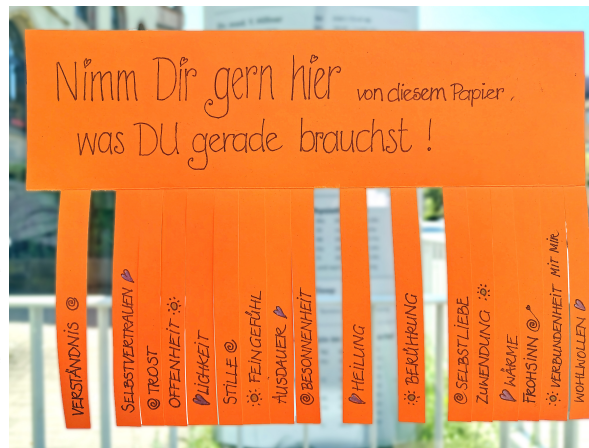 Nimm Dir gern hier von diesem Papier,
was DU gerade brauchst !
VERSTÄNDNIS
SELBSTVERTRAUEN
TROST
OFFENHEIT
LICHKEIT
STILLE
FEINGEFÜHL
AUSDAUER
BESONNENHEIT
HEILUNG
BERÜHRUNG
SELBSTLIEBE
ZUWENDUNG
WÄRME
FROHSINN
VERBUNDENHEIT MIT MIR
WOHLWOLLEN